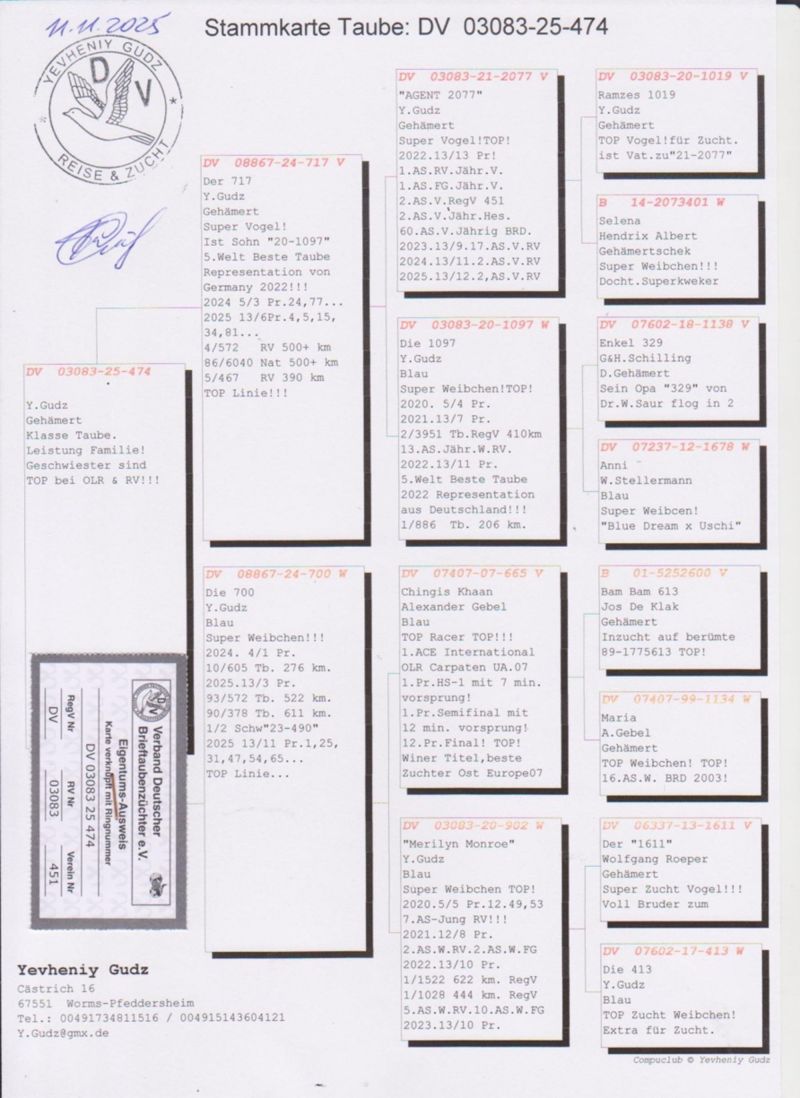 11.11.2025
Stammkarte Taube: DV 03083-25-474
YEVHENIY GUDZ
DV
REISE & ZUCHT
DV 03083-25-474
Y.Gudz
Gehämert
Klasse Taube.
Leistung Familie!
Geschwiester sind
TOP bei OLR & RV!!!
DV 08867-24-717 V
Der 717
Y.Gudz
Gehämert
Super Vogel!
Ist Sohn "20-1097"
5.Welt Beste Taube
Representation von
Germany 2022!!!
2024 5/3 Pr.24,77...
2025 13/6Pr.4,5,15,
34,81...
4/572 RV 500+ km
86/6040 Nat 500+ km
5/467 RV 390 km
TOP Linie!!!
DV 08867-24-700 W
Die 700
Y.Gudz
Blau
Super Weibchen!!!
2024. 4/1 Pr.
10/605 Tb. 276 km.
2025.13/3 Pr.
93/572 Tb. 522 km.
90/378 Tb. 611 km.
1/2 Schw"23-490"
2025 13/11 Pr.1,25,
31,47,54,65...
TOP Linie...
DV 03083-21-2077 V
"AGENT 2077"
Y.Gudz
Gehämert
Super Vogel!TOP!
2022.13/13 Pr!
1.AS.RV.Jähr.V.
1.AS.FG.Jähr.V.
2.AS.V.RegV 451
2.AS.V.Jähr.Hes.
60.AS.V.Jährig BRD.
2023.13/9.17.AS.V.RV
2024.13/11.2.AS.V.RV
2025.13/12.2,AS.V.RV
DV 03083-20-1097 W
Die 1097
Y.Gudz
Blau
Super Weibchen!TOP!
2020. 5/4 Pr.
2021.13/7 Pr.
2/3951 Tb.RegV 410km
13.AS.Jähr.W.RV.
2022.13/11 Pr.
5.Welt Beste Taube
2022 Representation
aus Deutschland!!!
1/886 Tb. 206 km.
DV 07407-07-665 V
Chingis Khaan
Alexander Gebel
Blau
TOP Racer TOP!!!
1.ACE International
OLR Carpaten UA.07
1.Pr.HS-1 mit 7 min.
vorsprung!
1.Pr.Semifinal mit
12 min. vorsprung!
12.Pr.Final! TOP!
Winer Titel,beste
Zuchter Ost Europe07
DV 03083-20-902 W
"Merilyn Monroe"
Y.Gudz
Blau
Super Weibchen TOP!
2020.5/5 Pr.12.49,53
7.AS-Jung RV!!!
2021.12/8 Pr.
2.AS.W.RV.2.AS.W.FG
2022.13/10 Pr.
1/1522 622 km. RegV
1/1028 444 km. RegV
5.AS.W.RV.10.AS.W.FG
2023.13/10 Pr.
DV 03083-20-1019 V
Ramzes 1019
Y.Gudz
Gehämert
TOP Vogel!für Zucht.
ist Vat.zu"21-2077"
B 14-2073401 W
Selena
Hendrix Albert
Gehämertschek
Super Weibchen!!!
Docht.Superkweker
DV 07602-18-1138 V
Enkel 329
G&H.Schilling
D.Gehämert
Sein Opa "329" von
Dr.W.Saur flog in 2
DV 07237-12-1678 W
Anni
W.Stellermann
Blau
Super Weibcen!
"Blue Dream x Uschi"
B 01-5252600 V
Bam Bam 613
Jos De Klak
Gehämert
Inzucht auf berümte
89-1775613 TOP!
DV 07407-99-1134 W
Maria
A.Gebel
Gehämert
TOP Weibchen! TOP!
16.AS.W. BRD 2003!
DV 06337-13-1611 V
Der "1611"
Wolfgang Roeper
Gehämert
Super Zucht Vogel!!!
Voll Bruder zum
DV 07602-17-413 W
Die 413
Y.Gudz
Blau
TOP Zucht Weibchen!
Extra für Zucht.
Verband Deutscher
Brieftaubenzüchter e.V.
Eigentums-Ausweis
Karte verknüpft mit Ringnummer
DV 03083 25 474
RegV Nr RV Nr Verein Nr
DV 03083 451
Yevheniy Gudz
Cästrich 16
67551 Worms-Pfeddersheim
Tel.: 00491734811516 / 004915143604121
Y.Gudz@gmx.de
Compuclub © Yevheniy Gudz